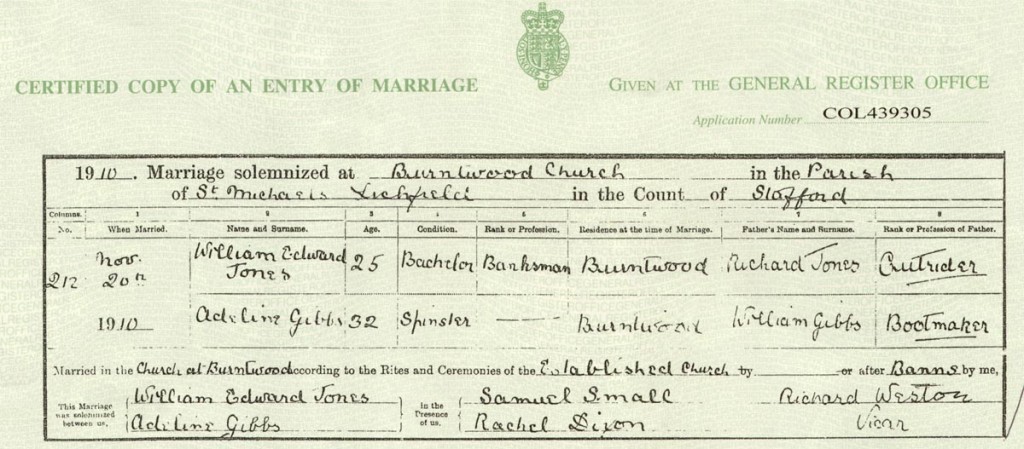 CERTIFIED COPY OF AN ENTRY OF MARRIAGE
GIVEN AT THE GENERAL REGISTER OFFICE
Application Number COL439305
1910. Marriage solemnized at Burntwood Church in the Parish
of St Michaels Lichfield in the Count of Stafford
Columns. 1 2 3 4 5 6 7 8
No. When Married. Name and Surname. Age. Condition. Rank or Profession. Residence at the time of Marriage. Father's Name and Surname. Rank or Profession of Father.
212 Nov. 20th William Edward Jones 25 Bachelor Banksman Burntwood Richard Jones Outrider
1910 Adeline Gibbs 32 Spinster — Burntwood William Gibbs Bootmaker
Married in the Church at Burntwood according to the Rites and Ceremonies of the Established Church by or after Banns by me,
This Marriage was solemnized between us,
William Edward Jones
Adeline Gibbs
In the Presence of us.
Samuel Small
Rachel Dixon
Richard Weston
Vicar